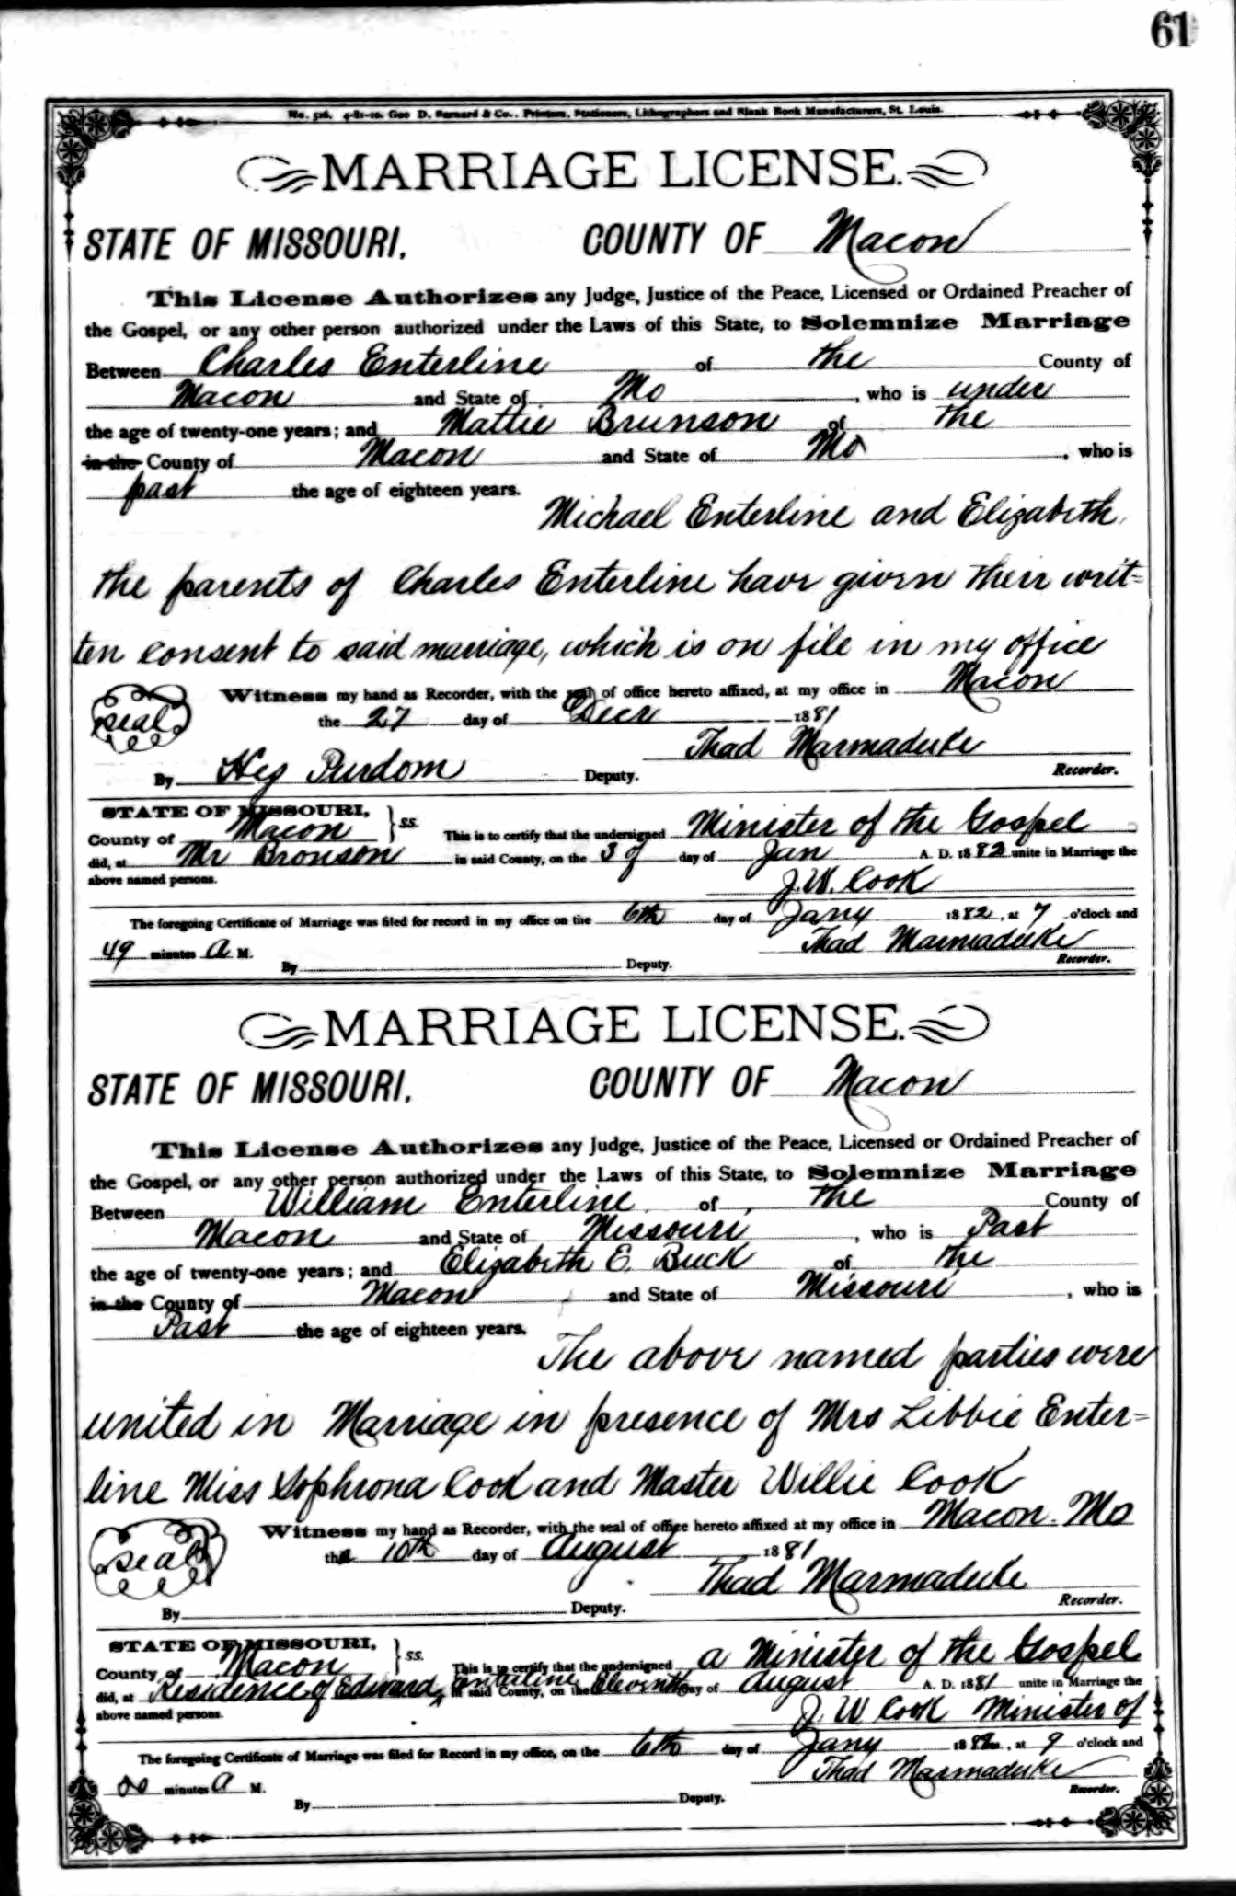 61
No. 516. 4-81-10. Geo D. Barnard & Co., Printers, Stationers, Lithographers and Blank Book Manufacturers, St. Louis.
MARRIAGE LICENSE.
STATE OF MISSOURI. COUNTY OF Macon
This License Authorizes any Judge, Justice of the Peace, Licensed or Ordained Preacher of
the Gospel, or any other person authorized under the Laws of this State, to Solemnize Marriage
Between Charles Enterline of the County of
Macon and State of Mo, who is under
the age of twenty-one years; and Mattie Brunson of the
in the County of Macon and State of Mo, who is
past the age of eighteen years.
Michael Enterline and Elizabeth,
the parents of Charles Enterline have given their writ=
ten consent to said marriage, which is on file in my office
Seal Witness my hand as Recorder, with the seal of office hereto affixed, at my office in Macon
the 27 day of Decr 1881
Thad Marmaduke
By Hez Purdom Deputy. Recorder.
STATE OF MISSOURI, ss.
County of Macon This is to certify that the undersigned Minister of the Gospel
did, at Mr Bronson in said County, on the 3 of day of Jan A. D. 1882 unite in Marriage the
above named persons. J. W. Cook
The foregoing Certificate of Marriage was filed for record in my office on the 6th day of Jany 1882, at 7 o'clock and
49 minutes A M. Thad Marmaduke
By Deputy. Recorder.
MARRIAGE LICENSE.
STATE OF MISSOURI. COUNTY OF Macon
This License Authorizes any Judge, Justice of the Peace, Licensed or Ordained Preacher of
the Gospel, or any other person authorized under the Laws of this State, to Solemnize Marriage
Between William Enterline of the County of
Macon and State of Missouri, who is Past
the age of twenty-one years; and Elizabeth E. Buck of the
in the County of Macon and State of Missouri, who is
Past the age of eighteen years.
The above named parties were
united in Marriage in presence of Mrs Libbie Enter=
line Miss Sophrona Cook and Master Willie Cook
Seal Witness my hand as Recorder, with the seal of office hereto affixed at my office in Macon. Mo
the 10th day of August 1881
Thad Marmaduke
By Deputy. Recorder.
STATE OF MISSOURI, ss.
County of Macon This is to certify that the undersigned a Minister of the Gospel
did, at Residence of Edward Enterline in said County, on the Eleventh day of August A. D. 1881 unite in Marriage the
above named persons. J. W Cook Minister of
The foregoing Certificate of Marriage was filed for Record in my office, on the 6th day of Jany 1882, at 9 o'clock and
00 minutes A M. Thad Marmaduke
By Deputy. Recorder.